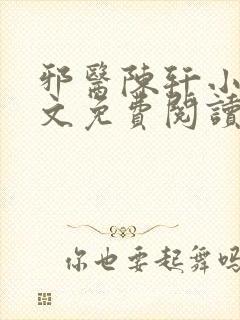 邪醫陳軒小
文免費閱讀
你也要起舞嗎